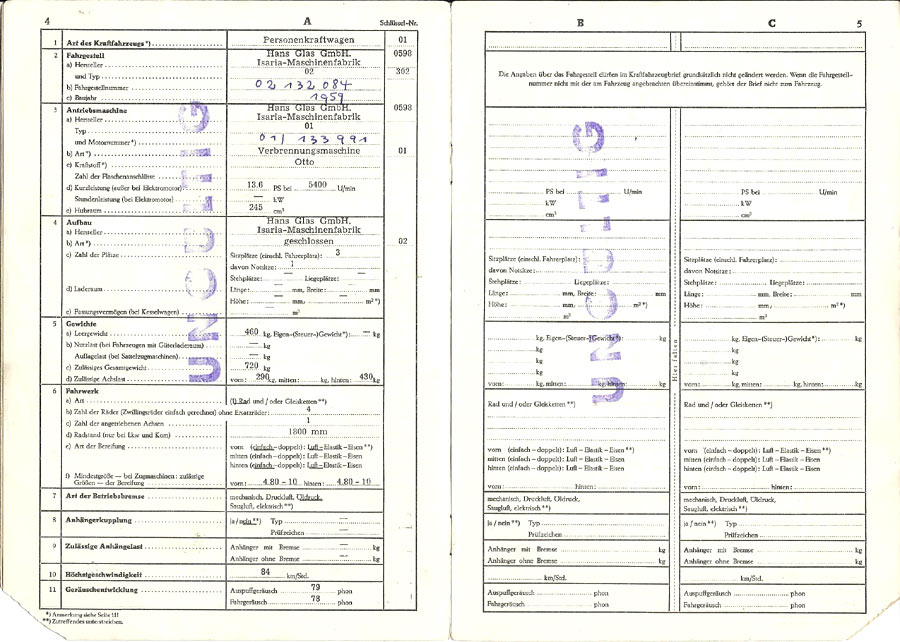 4 A Schlüssel-Nr.
1 Art des Kraftfahrzeugs*) Personenkraftwagen 01
2 Fahrgestell Hans Glas GmbH. 0598
a) Hersteller Isaria-Maschinenfabrik
und Typ 02 302
b) Fahrgestellnummer 02 132 084
c) Baujahr 1959
3 Antriebsmaschine Hans Glas GmbH. 0598
a) Hersteller Isaria-Maschinenfabrik
Typ 01
und Motornummer*) 01/ 133 991
b) Art*) Verbrennungsmaschine 01
c) Kraftstoff*) Otto
Zahl der Flaschenanschlüsse
d) Kurzleistung (außer bei Elektromotor) 13.6 PS bei 5400 U/min
Stundenleistung (bei Elektromotor) — kW
e) Hubraum 245 cm³
4 Aufbau Hans Glas GmbH.
a) Hersteller Isaria-Maschinenfabrik
b) Art*) geschlossen 02
c) Zahl der Plätze Sitzplätze (einschl. Fahrerplatz): 3
davon Notsitze: 1
Stehplätze: — Liegeplätze: —
d) Laderaum Länge: — mm, Breite: — mm
Höhe: — mm, — m²*)
e) Fassungsvermögen (bei Kesselwagen) — m³
5 Gewichte
a) Leergewicht 460 kg, Eigen-(Steuer-)Gewicht*): — kg
b) Nutzlast (bei Fahrzeugen mit Güterladeraum) — kg
Auflagelast (bei Sattelzugmaschinen) — kg
c) Zulässiges Gesamtgewicht 720 kg
d) Zulässige Achslast vorn: 290 kg, mitten: kg, hinten: 430 kg
6 Fahrwerk
a) Art (1) Rad und/oder Gleisketten**)
b) Zahl der Räder (Zwillingsräder einfach gerechnet) ohne Ersatzräder: 4
c) Zahl der angetriebenen Achsen 1
d) Radstand (nur bei Lkw und Kom) 1800 mm
e) Art der Bereifung vorn (einfach – doppelt): Luft – Elastik – Eisen**)
mitten (einfach – doppelt): Luft – Elastik – Eisen
hinten (einfach – doppelt): Luft – Elastik – Eisen
f) Mindestgröße — bei Zugmaschinen: zulässige
Größen — der Bereifung vorn: 4.80 – 10 hinten: 4.80 – 10
7 Art der Betriebsbremse mechanisch, Druckluft, Öldruck,
Saugluft, elektrisch**)
8 Anhängerkupplung ja/nein**) Typ —
Prüfzeichen —
9 Zulässige Anhängelast Anhänger mit Bremse — kg
Anhänger ohne Bremse — kg
10 Höchstgeschwindigkeit 84 km/Std.
11 Geräuschentwicklung Auspuffgeräusch 79 phon
Fahrgeräusch 78 phon
*) Anmerkung siehe Seite III
**) Zutreffendes unterstreichen.
UNGÜLTIG
B C 5
Die Angaben über das Fahrgestell dürfen im Kraftfahrzeugbrief grundsätzlich nicht geändert werden. Wenn die Fahrgestell-
nummer nicht mit der am Fahrzeug angebrachten übereinstimmt, gehört der Brief nicht zum Fahrzeug.
PS bei U/min PS bei U/min
kW kW
cm³ cm³
Sitzplätze (einschl. Fahrerplatz): Sitzplätze (einschl. Fahrerplatz):
davon Notsitze: davon Notsitze:
Stehplätze: Liegeplätze: Stehplätze: Liegeplätze:
Länge: mm, Breite: mm Länge: mm, Breite: mm
Höhe: mm, m²*) Höhe: mm, m²*)
m³ m³
kg, Eigen-(Steuer-)Gewicht*): kg kg, Eigen-(Steuer-)Gewicht*): kg
kg kg
kg kg
kg kg
vorn: kg, mitten: kg, hinten: kg vorn: kg, mitten: kg, hinten: kg
Hier falten
Rad und/oder Gleisketten**) Rad und/oder Gleisketten**)
vorn (einfach – doppelt): Luft – Elastik – Eisen**) vorn (einfach – doppelt): Luft – Elastik – Eisen**)
mitten (einfach – doppelt): Luft – Elastik – Eisen mitten (einfach – doppelt): Luft – Elastik – Eisen
hinten (einfach – doppelt): Luft – Elastik – Eisen hinten (einfach – doppelt): Luft – Elastik – Eisen
vorn: hinten: vorn: hinten:
mechanisch, Druckluft, Öldruck, mechanisch, Druckluft, Öldruck,
Saugluft, elektrisch**) Saugluft, elektrisch**)
ja/nein**) Typ ja/nein**) Typ
Prüfzeichen Prüfzeichen
Anhänger mit Bremse kg Anhänger mit Bremse kg
Anhänger ohne Bremse kg Anhänger ohne Bremse kg
km/Std. km/Std.
Auspuffgeräusch phon Auspuffgeräusch phon
Fahrgeräusch phon Fahrgeräusch phon
UNGÜLTIG